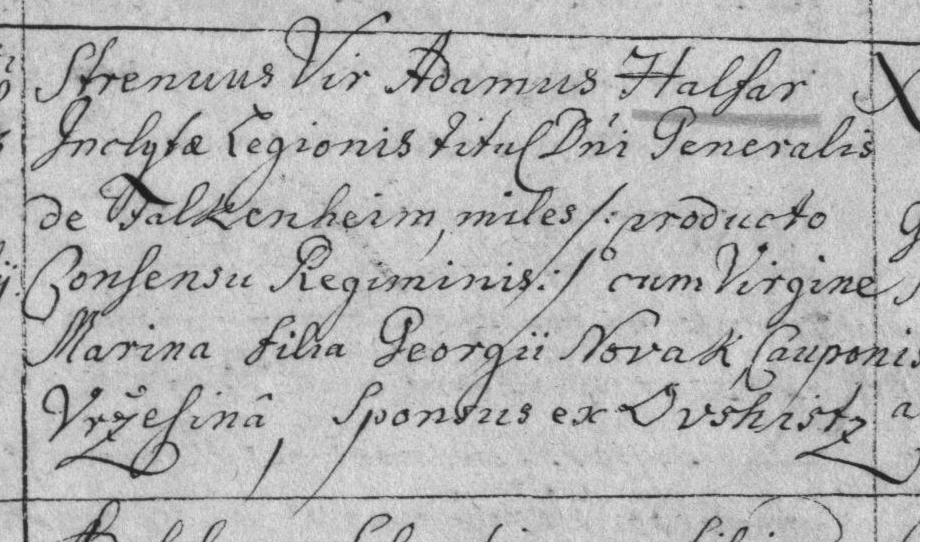 Strenuus Vir Adamus Halfar
Inclytæ Legionis titul Dńi Generalis
de Falkenheim, miles /: producto
Consensu Regiminis :/ cum Virgine
Marina filia Georgii Novak Cauponis
Vržesinâ, Sponsus ex Ovshistz